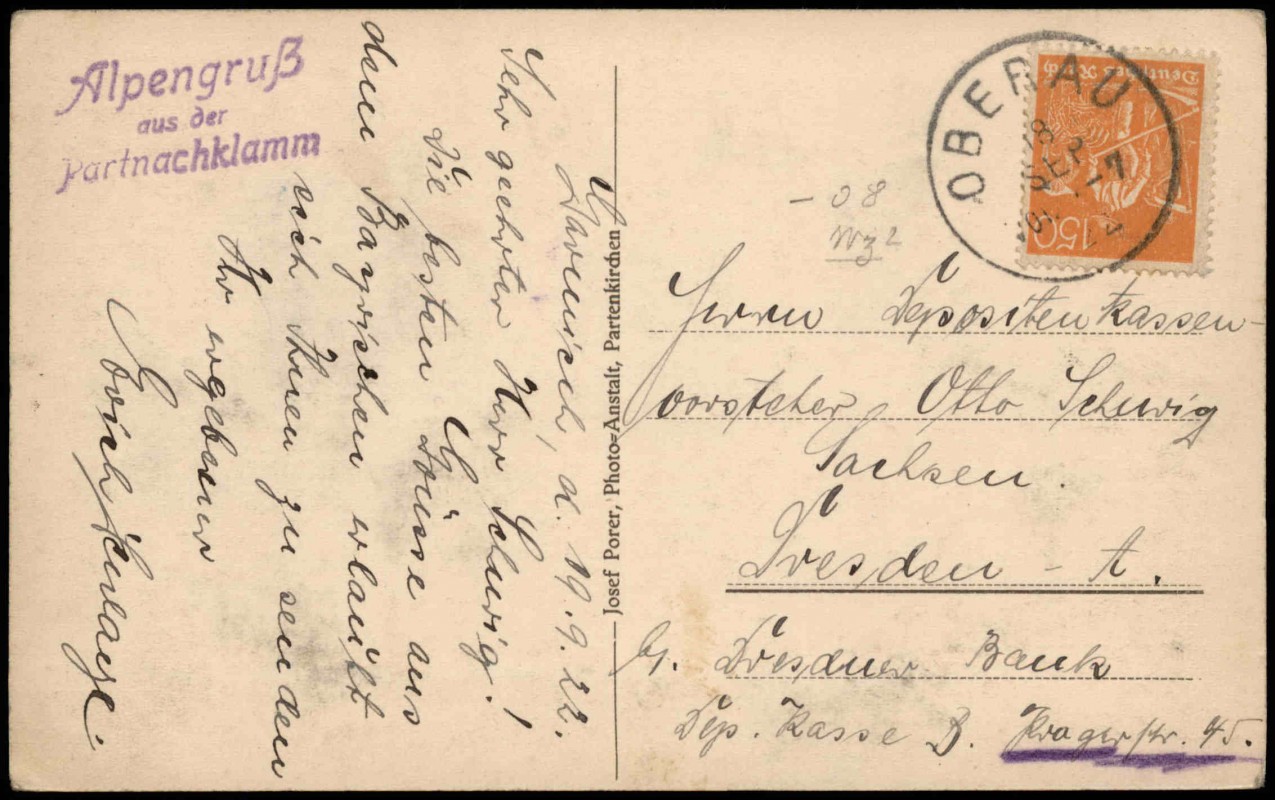 Alpengruß
aus der
Partnachklamm
Garmisch, d. 19.9.22.
Sehr geehrter Herr Schwig!
Die besten Grüsse aus
dem Bayrischen erlaubt
sich Ihnen zu senden
Ihr ergebener
Erich
Josef Porer, Photo-Anstalt, Partenkirchen
OBERAU
SEP
Deutsches Reich
150
- 08
Wz 2
Herrn Depositenkassen-
vorsteher Otto Schwig
Sachsen.
Dresden - A.
Dresdner Bank
Dep. Kasse B. Pragerstr. 45.